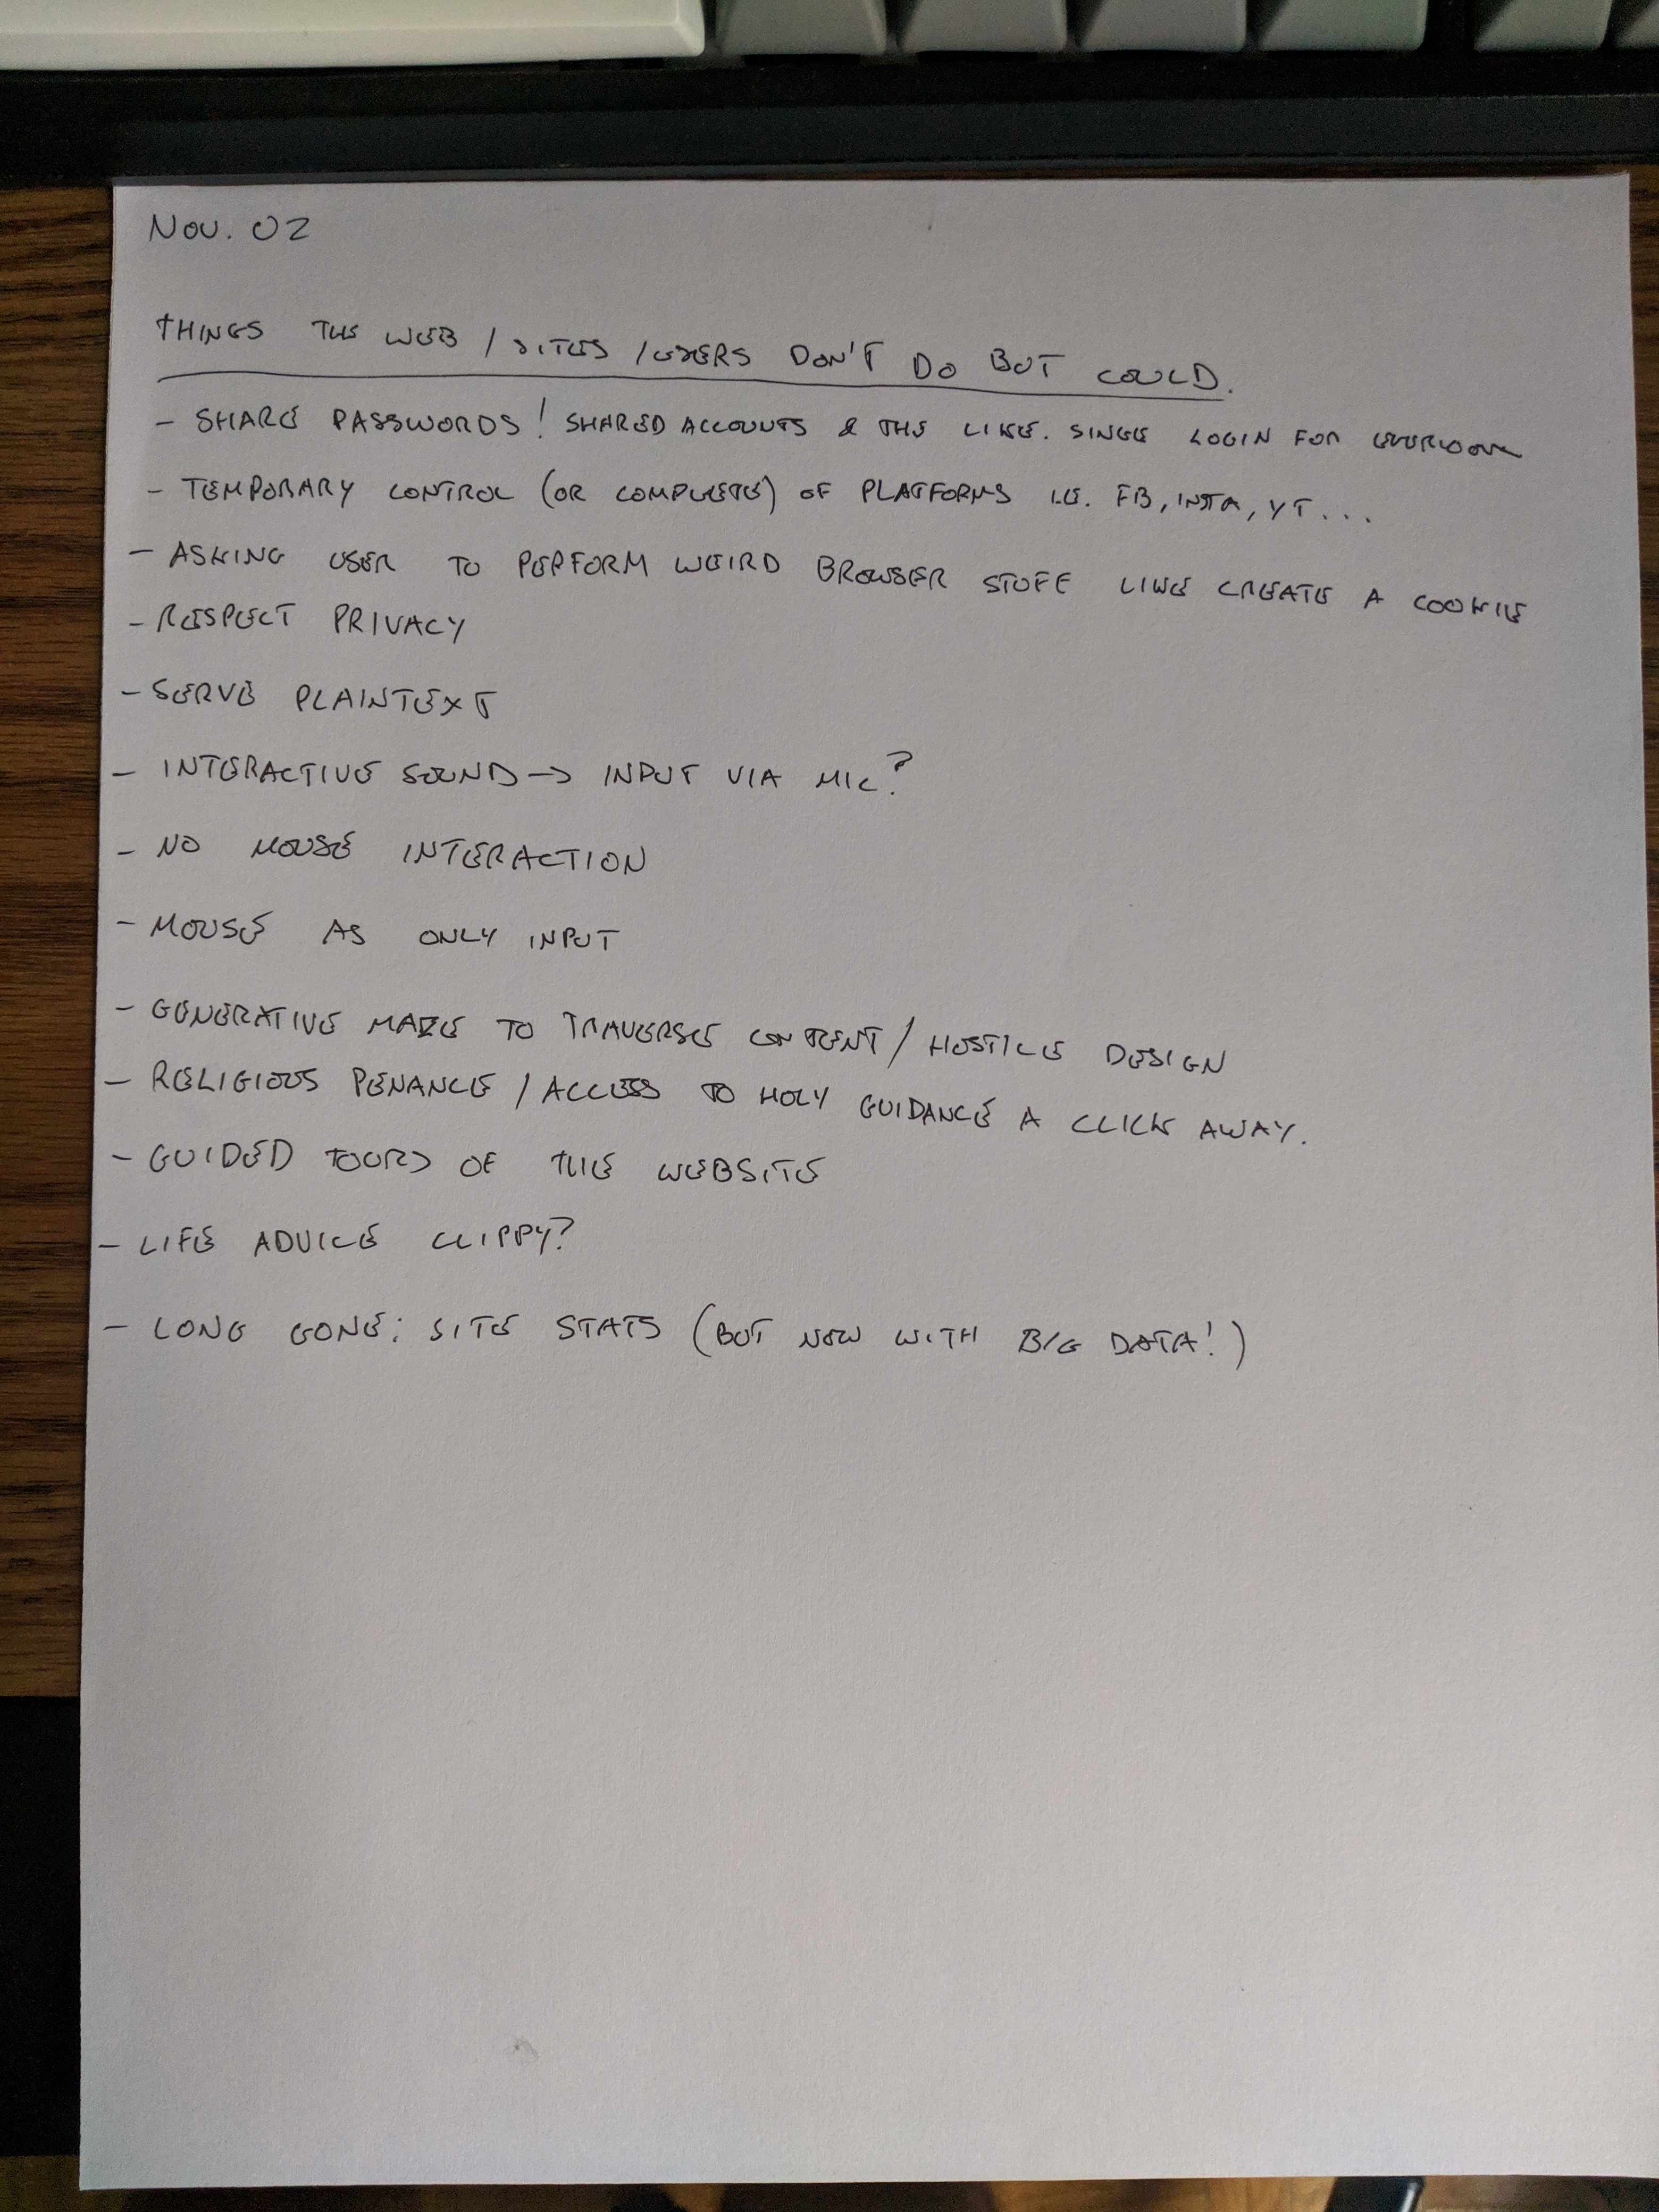 NOV. 02
THINGS THE WEB / SITES / USERS DON'T DO BUT COULD.
- SHARE PASSWORDS! SHARED ACCOUNTS & THE LIKE. SINGLE LOGIN FOR EVERYONE
- TEMPORARY CONTROL (OR COMPLETE) OF PLATFORMS I.E. FB, INSTA, YT...
- ASKING USER TO PERFORM WEIRD BROWSER STUFF LIKE CREATE A COOKIE
- RESPECT PRIVACY
- SERVE PLAINTEXT
- INTERACTIVE SOUND -> INPUT VIA MIC?
- NO MOUSE INTERACTION
- MOUSE AS ONLY INPUT
- GENERATIVE MAZE TO TRAVERSE CONTENT / HOSTILE DESIGN
- RELIGIOUS PENANCE / ACCESS TO HOLY GUIDANCE A CLICK AWAY.
- GUIDED TOURS OF THE WEBSITE
- LIFE ADVICE CLIPPY?
- LONG GONE: SITE STATS (BUT NOW WITH BIG DATA!)